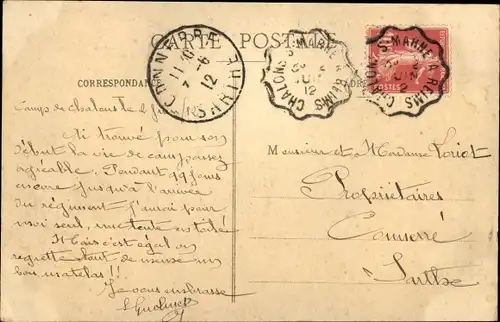 CARTE POSTALE
CORRESPONDANCE
CONNERRÉ
11-
7 -6
12
SARTHE
CHALONS S. MARNE A REIMS
JUIN
12
CHALONS S. MARNE A REIMS
JUIN
12
POSTES
Camp de chalons le 2 juin
Ai trouvé pour son
début la vie de camp assez
agréable. Pendant 19 jours
encore jusqu'à l'arrivée
du régiment j'aurai pour
moi seul, une tente
Mais c'est égal on
regrette tout de même un
bon matelas !!
Je vous embrasse
Monsieur et Madame Loriot
Propriétaires
Connerré
Sarthe